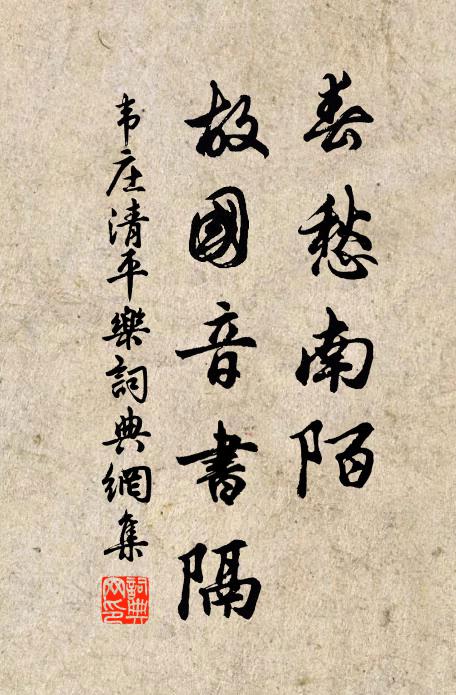 春愁南陌
故國音書隔
韦庄清平樂詞典網集
詞典网印